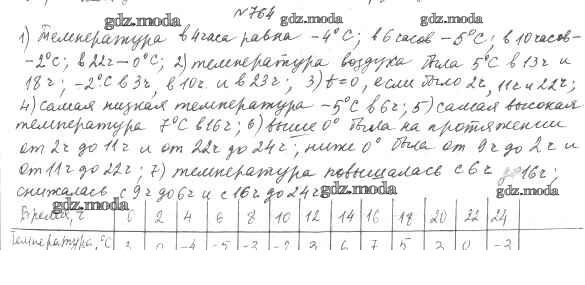 №764
gdz.moda gdz.moda gdz.moda
1) Температура в 4 часа равна -4°C; в 6 часов -5°C; в 10 часов-
-2°C; в 22ч - 0°C; 2) температура воздуха была 5°C в 13ч и
18ч; -2°C в 3ч, в 10ч. и в 23ч; 3) t=0, если было 2ч, 11ч и 22ч;
gdz.moda gdz.moda gdz.moda
4) самая низкая температура -5°C в 6ч; 5) самая высокая
температура 7°C в 16ч; 6) выше 0° была на протяжении
gdz.moda gdz.moda gdz.moda
от 2ч до 11ч и от 22ч до 24ч, ниже 0° была от 9ч до 2ч и
от 11ч до 22ч; 7) температура повышалась с 6ч до 16ч;
снижалась с 9ч до 6ч и с 16ч до 24ч
gdz.moda gdz.moda gdz.moda
Время, ч 0 2 4 6 8 10 12 14 16 18 20 22 24
Температура, °C 0 -4 -5 -2 3 6 7 5 0